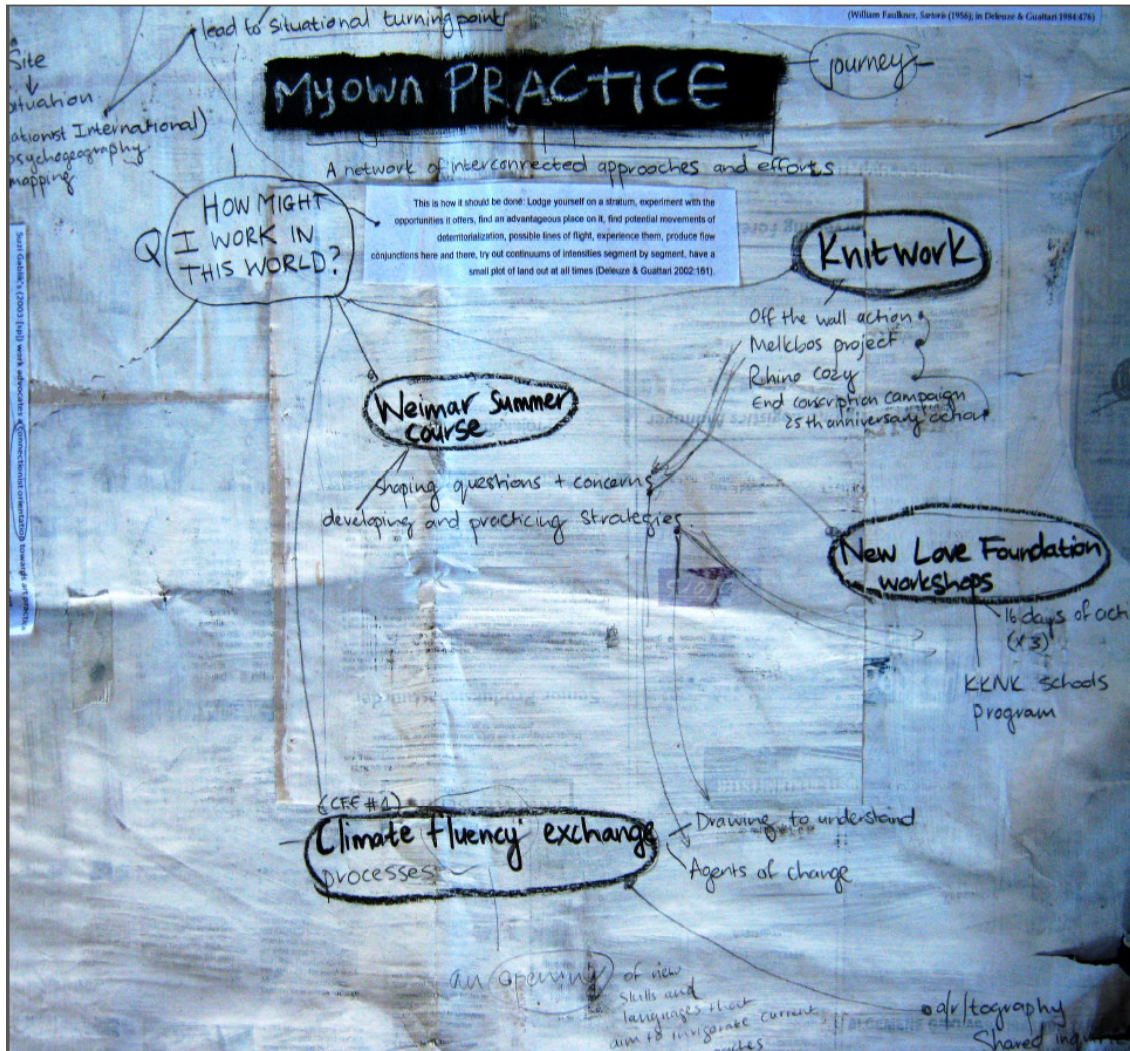 (William Faulkner, Sartoris (1956); in Deleuze & Guattari 1984:476)
lead to situational turning points
journey
Site
ituation
ationist International)
psychogeography
mapping
MY OWN PRACTICE
A network of interconnected approaches and efforts
Q
HOW MIGHT
I WORK IN
THIS WORLD?
This is how it should be done: Lodge yourself on a stratum, experiment with the
opportunities it offers, find an advantageous place on it, find potential movements of
deterritorialization, possible lines of flight, experience them, produce flow
conjunctions here and there, try out continuums of intensities segment by segment, have a
small plot of land out at all times (Deleuze & Guattari 2002:161).
Suzi Gablik's (2003: [sp]) work advocates a connectionist orientation towards art practice
Knitwork
Off the wall action
Melkbos project
Rhino cozy
End conscription campaign
25th anniversary action
Weimar Summer
course
shaping questions + concerns
developing and practicing strategies
New Love Foundation
workshops
16 days of acti
(x 3)
KKNK schools
program
(CFE #1)
Climate fluency exchange
processes
Drawing to understand
Agents of change
an opening of new
skills and
languages that
aim to invigorate current
a/r/tography
Shared inquiries